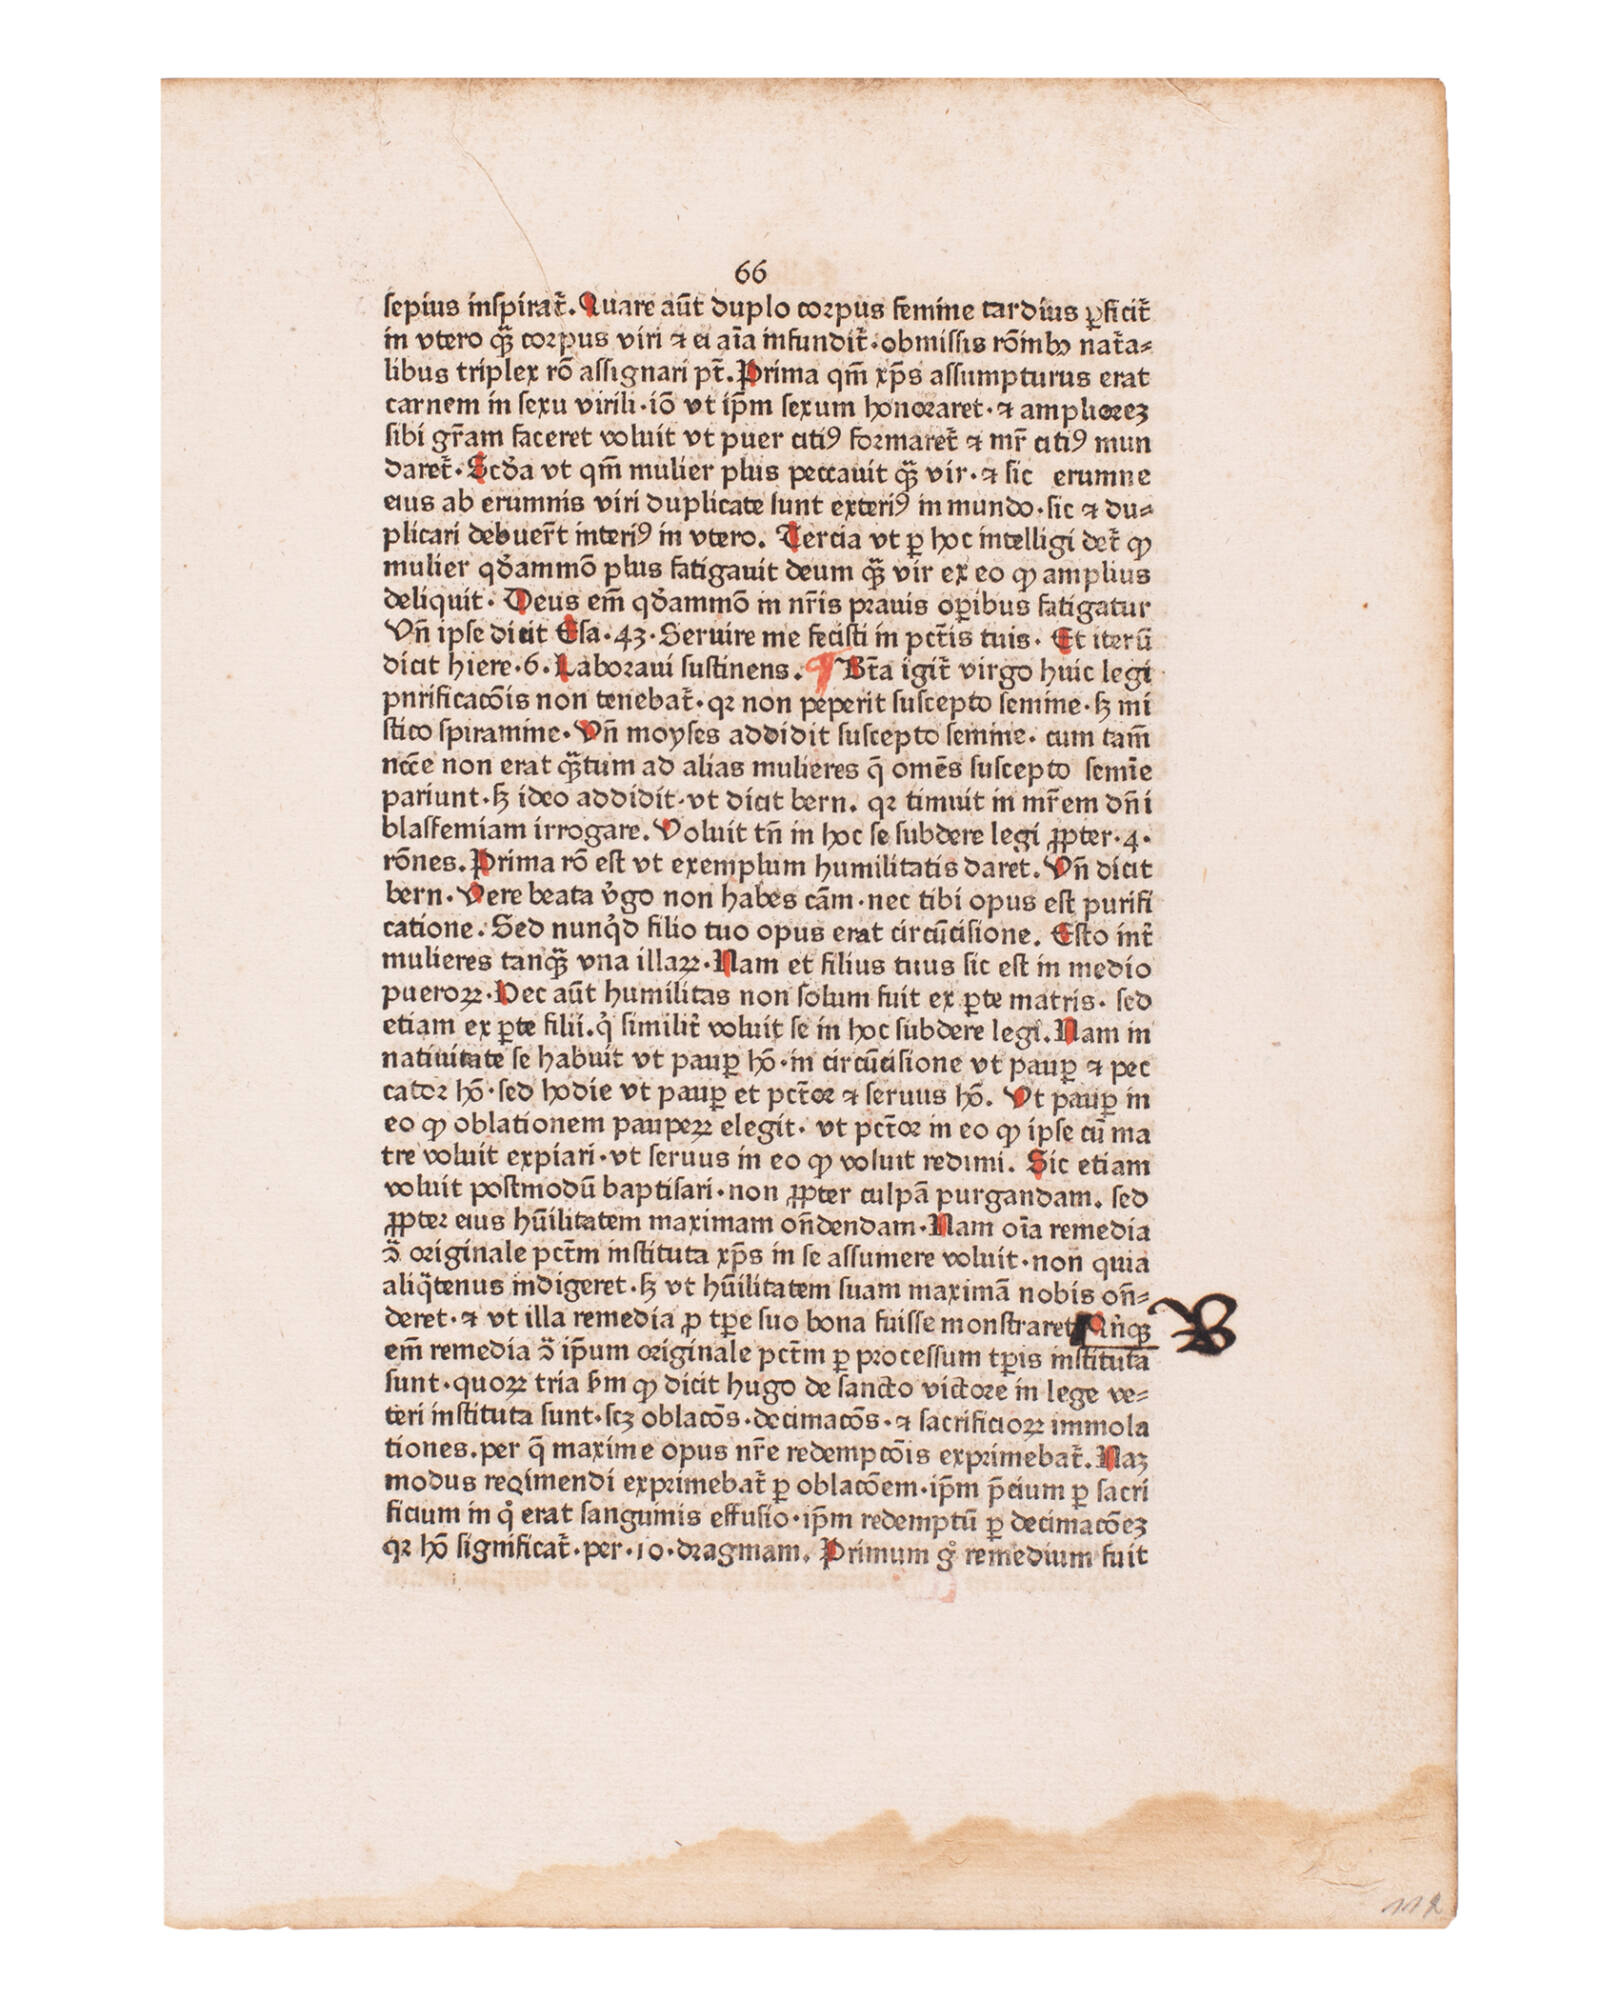 66
sepius inspirat̄. Quare aūt duplo corpus femine tardius ꝑficit̄
in vtero qꝫ̄ corpus viri ⁊ ei aīa infundit̄·obmissis rōnibꝰ nat̄a⸗
libus triplex rō assignari pt̄. Prima qm̄ xp̄s assumpturus erat
carnem in sexu virili·iō vt ip̄m sexum honoraret·⁊ ampliorez
sibi gr̄am faceret voluit vt puer citiꝰ formaret̄ ⁊ mr̄ citiꝰ mun
daret̄. Scd̄a vt qm̄ mulier plus peccauit qꝫ̄ vir·⁊ sic erumne
eius ab erumnis viri duplicate sunt exteriꝰ in mundo·sic ⁊ du⸗
plicari debuer̄t interiꝰ in vtero. Tercia vt ꝑ hoc intelligi det̄ ꝙ
mulier qd̄ammō plus fatigauit deum qꝫ̄ vir ex eo ꝙ amplius
deliquit. Deus em̄ qd̄ammō in nr̄is prauis oꝑibus fatigatur
Vn̄ ipse dicit Esa·43·Seruire me fecisti in pct̄is tuis. Et iterū
dicit hiere·6·Laboraui sustinens. ¶ Bt̄a igit̄ virgo huic legi
pnrificacōis non tenebat̄·qꝛ non peperit suscepto semine·sꝫ mi
stico spiramine. Vn̄ moyses addidit suscepto semine. cum tam̄
ncc̄e non erat qꝫ̄tum ad alias mulieres q̄ omēs suscepto semīe
pariunt·sꝫ ideo addidit·vt dicit bern. qꝛ timuit in mr̄em dn̄i
blasfemiam irrogare. Voluit tn̄ in hoc se subdere legi ꝓpter·4·
rōnes. Prima rō est vt exemplum humilitatis daret. Vn̄ dicit
bern. Vere beata v̓go non habes cām·nec tibi opus est purifi
catione. Sed nunqd̓ filio tuo opus erat circūcisione. Esto int̓
mulieres tanqꝫ̄ vna illaꝝ. Nam et filius tuus sic est in medio
pueroꝝ. Nec aūt humilitas non solum fuit ex ꝑte matris. sed
etiam ex ꝑte filii. q̓ similit̓ voluit se in hoc subdere legi. Nam in
natiuitate se habuit vt pauꝑ hō·in circūcisione vt pauꝑ ⁊ pec
cator hō·sed hodie vt pauꝑ et pct̄or ⁊ seruus hō. Vt pauꝑ in
eo ꝙ oblationem pauꝑeꝝ elegit. vt pct̄or in eo ꝙ ipse cū ma
tre voluit expiari·vt seruus in eo ꝙ voluit redimi. Sic etiam
voluit postmodū baptisari·non ꝓpter culpā purgandam. sed
ꝓpter eius hūilitatem maximam on̄dendam. Nam oīa remedia
ↄ̄ originale pct̄m instituta xp̄s in se assumere voluit·non quia
aliq̄tenus indigeret·sꝫ vt hūilitatem suam maximā nobis on̄⸗
deret·⁊ vt illa remedia ꝓ tꝑe suo bona fuisse monstraret Qn̓qꝫ B
em̄ remedia ↄ̄ ip̄um originale pct̄m ꝑ processum tꝑis instituta
sunt·quoꝝ tria sm̄ ꝙ dicit hugo de sancto victore in lege ve⸗
teri instituta sunt·scꝫ oblacōs·decimacōs·⁊ sacrificioꝝ immola
tiones. per q̄ maxime opus nr̄e redempcōis exprimebat̄. Naꝫ
modus reqimendi exprimebat̄ ꝑ oblacōem·ip̄m p̄cium ꝑ sacri
ficium in q̊ erat sanguinis effusio·ip̄m redemptū ꝑ decimacōeꝫ
qꝛ hō significat̄·per·10·dragmam. Primum g̊ remedium fuit
112